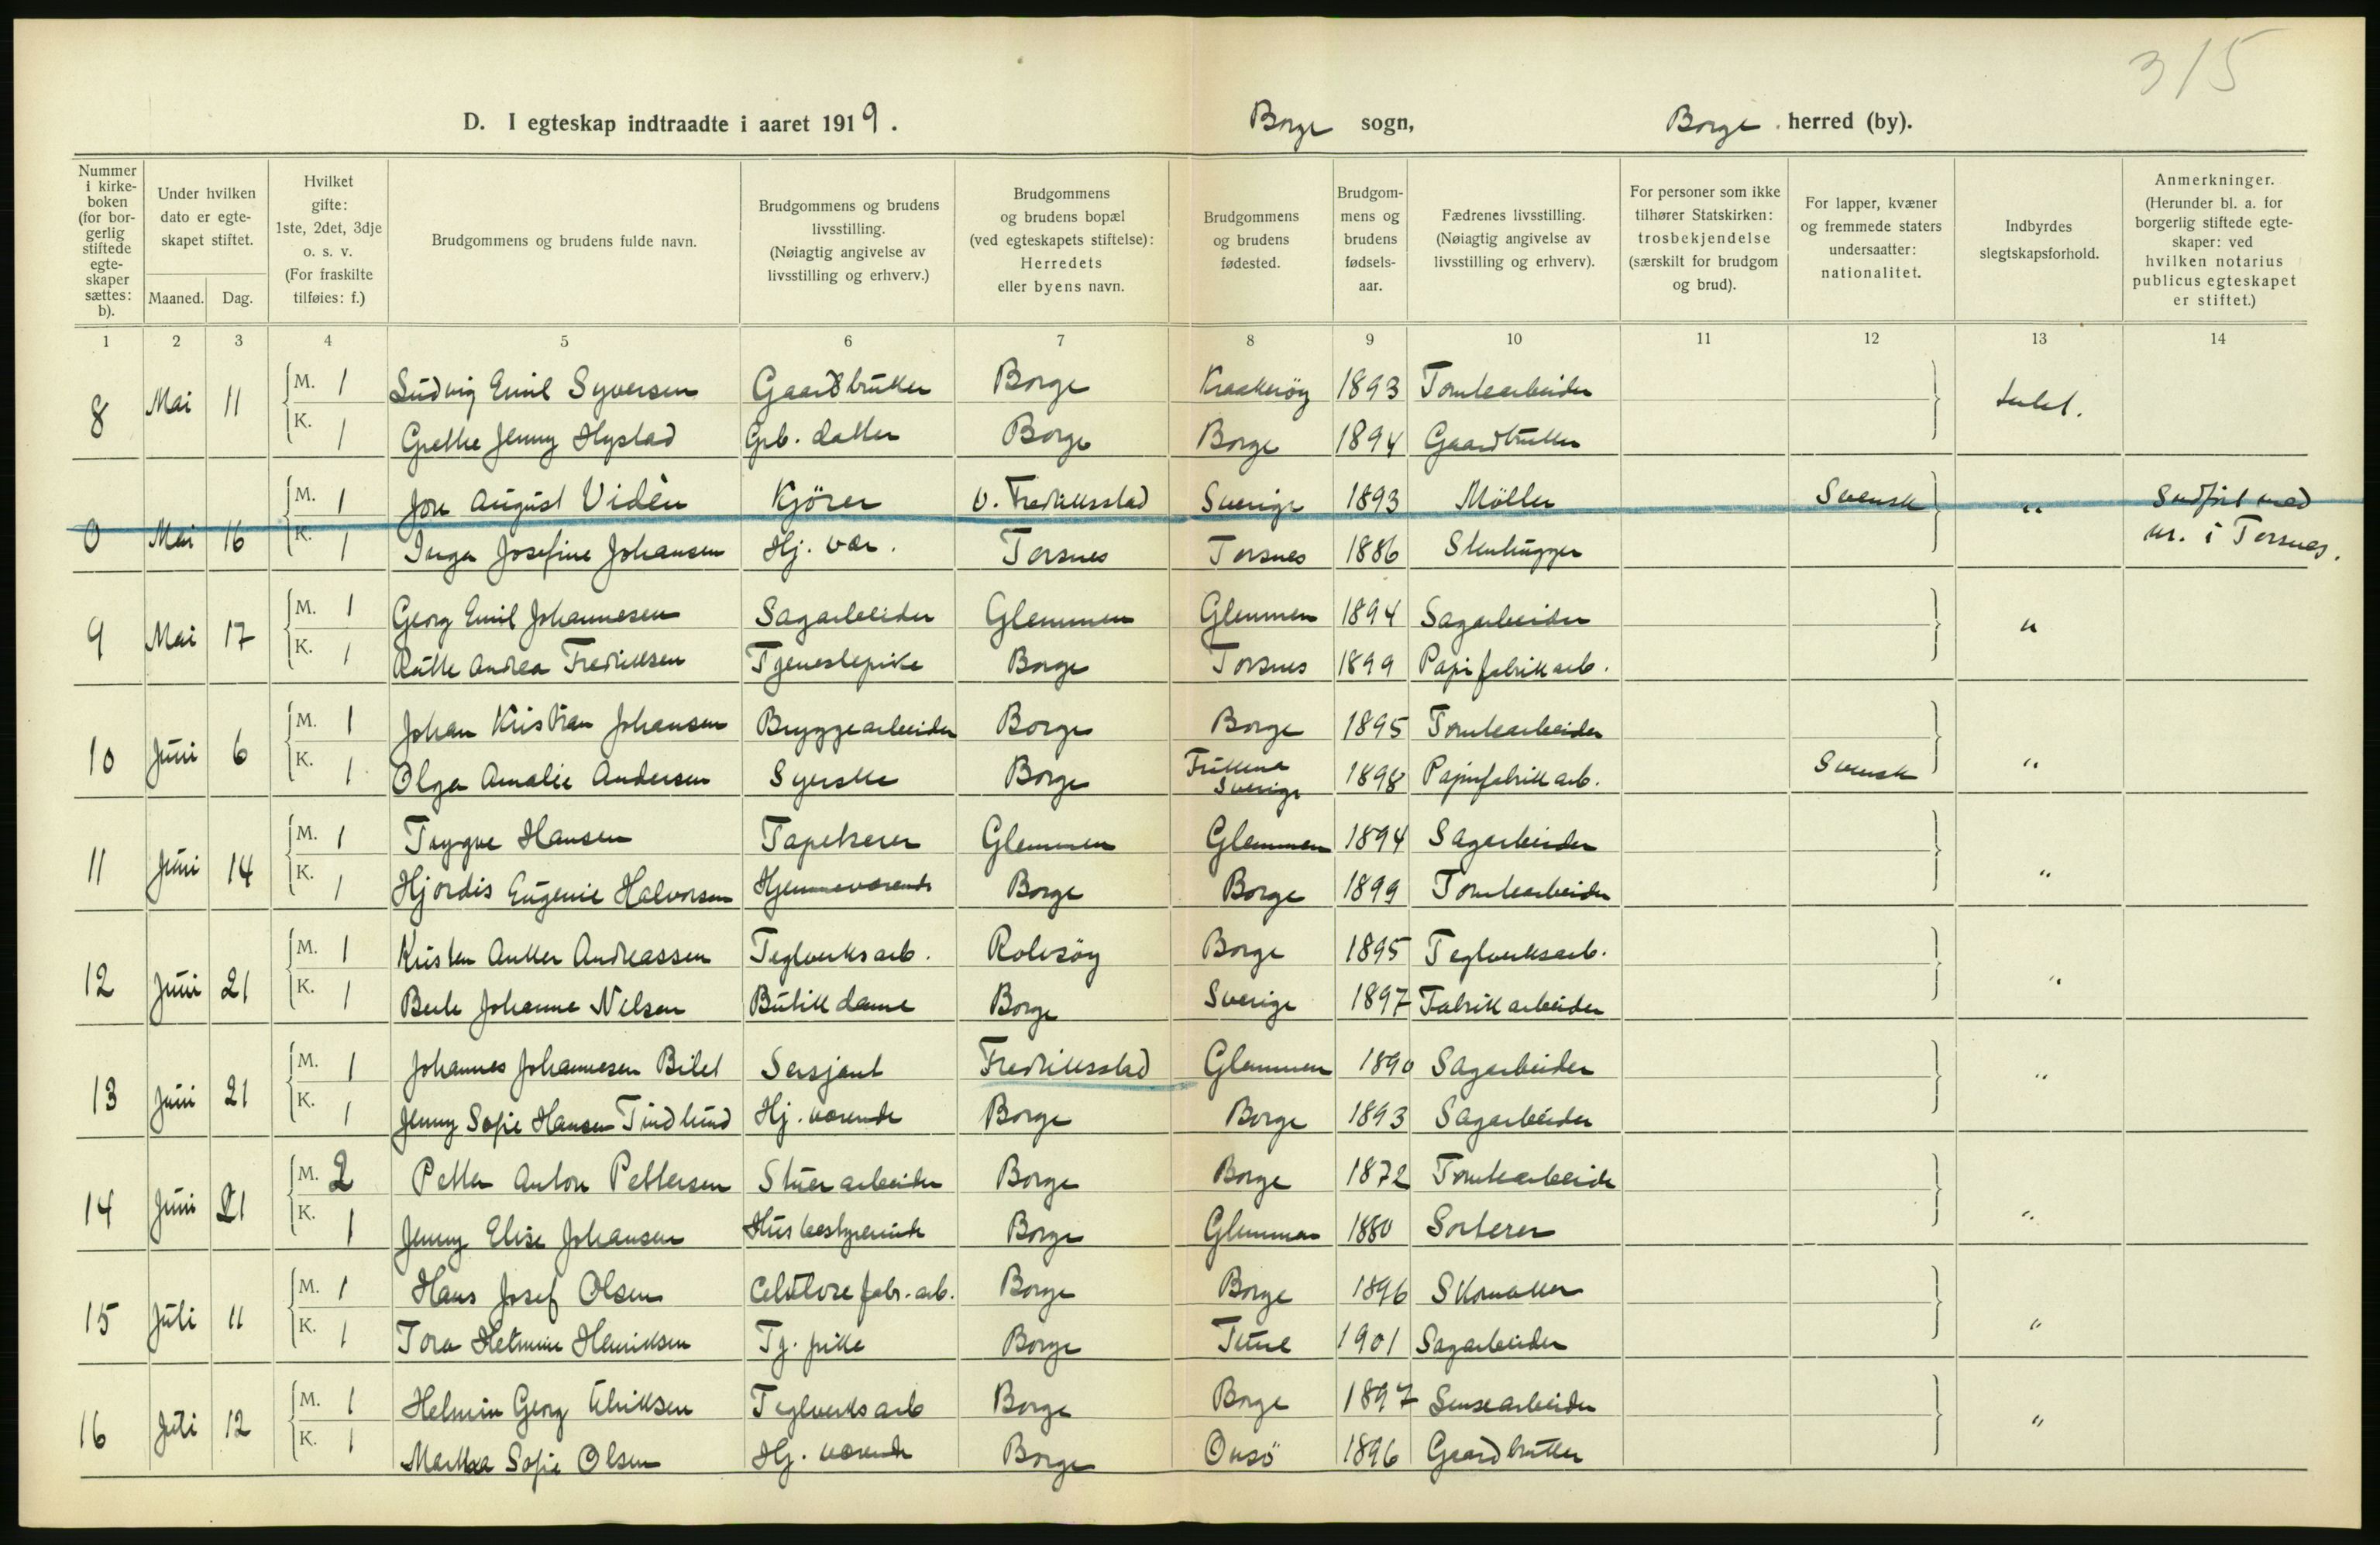 315
D. I egteskap indtraadte i aaret 1919. Borge sogn, Borge herred (by).
Nummer i kirkeboken (for borgerlig stiftede egteskaper sættes: b).
Under hvilken dato er egteskapet stiftet.
Maaned. Dag.
Hvilket gifte: 1ste, 2det, 3dje o. s. v. (For fraskilte tilføies: f.)
Brudgommens og brudens fulde navn.
Brudgommens og brudens livsstilling. (Nøiagtig angivelse av livsstilling og erhverv.)
Brudgommens og brudens bopæl (ved egteskapets stiftelse): Herredets eller byens navn.
Brudgommens og brudens fødested.
Brudgommens og brudens fødselsaar.
Fædrenes livsstilling. (Nøiagtig angivelse av livsstilling og erhverv).
For personer som ikke tilhører Statskirken: trosbekjendelse (særskilt for brudgom og brud).
For lapper, kvæner og fremmede staters undersaatter: nationalitet.
Indbyrdes slegtskapsforhold.
Anmerkninger. (Herunder bl. a. for borgerlig stiftede egteskaper: ved hvilken notarius publicus egteskapet er stiftet.)
1 2 3 4 5 6 7 8 9 10 11 12 13 14
8 Mai 11 M. 1 Ludvig Emil Syversen Gaardbruker Borge Kraakerøy 1893 Tomtearbeider intet.
K. 1 Grethe Jenny Hystad Grb. datter Borge Borge 1894 Gaardbruker
0 Mai 16 M. 1 Jon August Vidèn Kjörer V. Fredriksstad Sverige 1893 Möller Svensk " Indført med
K. 1 Inga Josefine Johansen Hj. vær. Torsnes Torsnes 1886 Stenhugger nr. i Torsnes.
9 Mai 17 M. 1 Georg Emil Johannesen Sagarbeider Glemmen Glemmen 1894 Sagarbeider "
K. 1 Ruth Andrea Fredriksen Tjenestepike Borge Torsnes 1899 Papirfabrikarb.
10 Juni 6 M. 1 Johan Kristian Johansen Bryggearbeider Borge Borge 1895 Tomtearbeider "
K. 1 Olga Amalie Andersen Syerske Borge Sverige 1898 Papirfabrikarb. Svensk
11 Juni 14 M. 1 Trygve Hansen Tapetserer Glemmen Glemmen 1894 Sagarbeider "
K. 1 Hjordis Eugenie Halvorsen Hjemmeværende Borge Borge 1899 Tomtearbeider
12 Juni 21 M. 1 Kristen Anker Andreassen Teglverksarb. Rolvsøy Borge 1895 Teglverksarb. "
K. 1 Berte Johanne Nilsen Butikdame Borge Sverige 1897 Fabrikarbeider
13 Juni 21 M. 1 Johannes Johannesen Bilet Sersjant Fredriksstad Glemmen 1890 Sagarbeider "
K. 1 Jenny Sofie Hansen Tindlund Hj. værende Borge Borge 1893 Sagarbeider
14 Juni 21 M. 2 Petter Anton Pettersen Stuerarbeider Borge Borge 1872 Tomtearbeide "
K. 1 Jenny Elise Johansen Husbestyrerinde Borge Glemmen 1880 Sorterer
15 Juli 11 M. 1 Hans Josef Olsen Celulosefabr.arb. Borge Borge 1896 Skomaker "
K. 1 Tora Helmine Henriksen Tj. pike Borge Tune 1901 Sagarbeider
16 Juli 12 M. 1 Helmin Georg Ulriksen Teglverksarb Borge Borge 1897 Lensearbeider "
K. 1 Martha Sofie Olsen Hj. værende Borge Onsö 1896 Gaardbruker